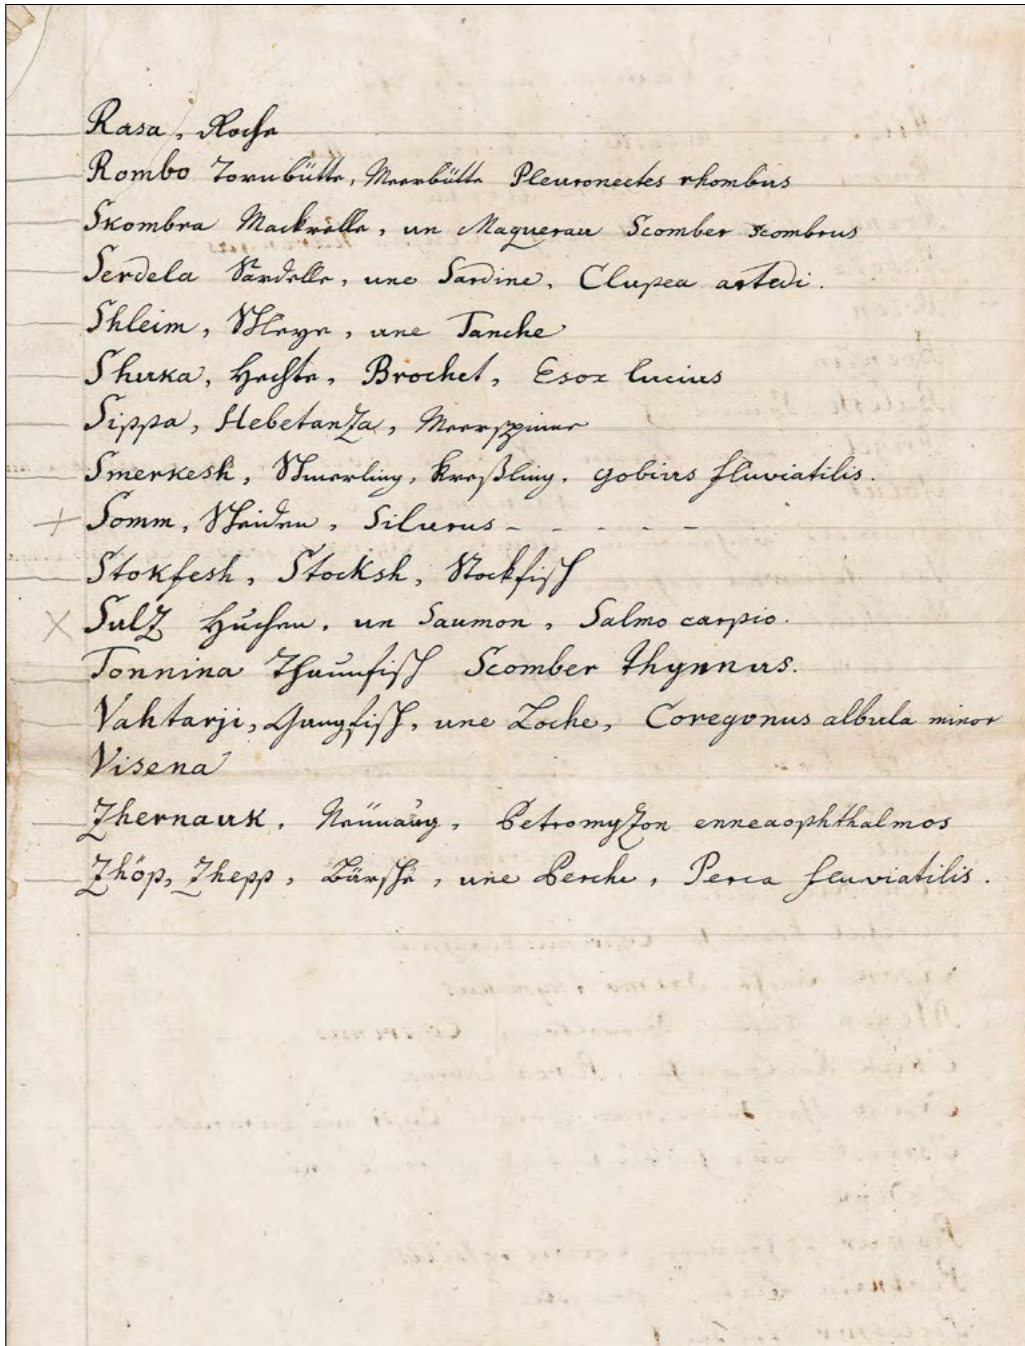 Rasa, Roche
Rombo Dornbütte, Meerbütte Pleuronectes rhombus
Skombra Mackrelle, un Maquerau Scomber scombrus
Serdela Sardelle, une Sardine, Clupea artedi.
Shleim, Schleye, une Tanche
Shuka, Hechte, Brochet, Esox lucius
Sippa, HebetanZa, Meerspinne
Smerkesh, Schmerling, Kreßling, gobius fluviatilis.
+ Somm, Scheiden, Silurus - - - - -
Stokfesh, Stocksh, Stockfisch
× SulZ Huchen, un Saumon, Salmo carpio.
Tonnina Thunnfisch Scomber thynnus.
Vahtarji, Gangfisch, une Loche, Coregonus albula minor
Visena
Zhernauk, Neünaug, PetromyZon enneaophthalmos
Zhöp, Zhepp, Bärsche, une Perche, Perca fluviatilis.